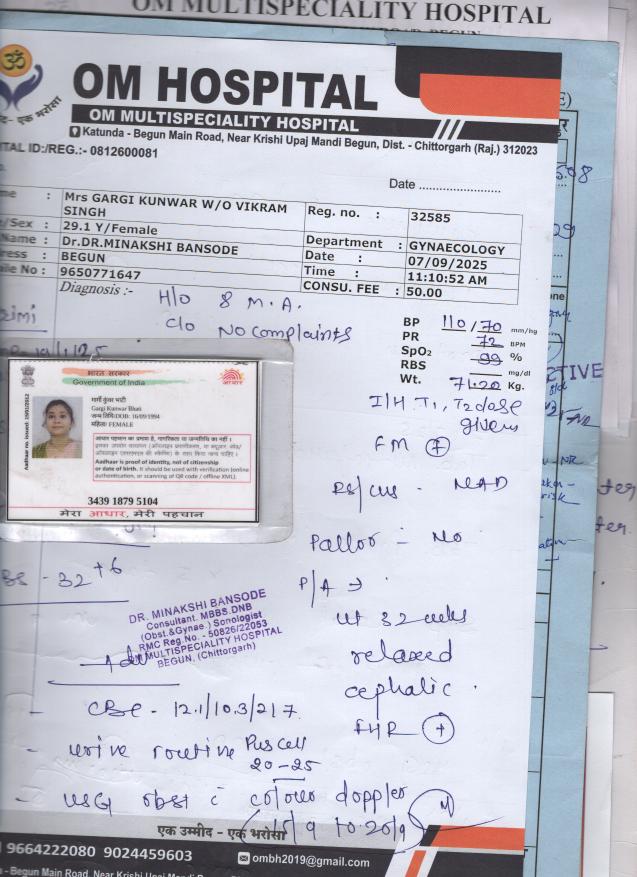 OM MULTISPECIALITY HOSPITAL
OM HOSPITAL
OM MULTISPECIALITY HOSPITAL
एक भरोसा
Katunda - Begun Main Road, Near Krishi Upaj Mandi Begun, Dist. - Chittorgarh (Raj.) 312023
TAL ID:/REG.:- 0812600081
Date ........................
me : Mrs GARGI KUNWAR W/O VIKRAM SINGH
Reg. no. : 32585
/Sex : 29.1 Y/Female
Name : Dr.DR.MINAKSHI BANSODE
Department : GYNAECOLOGY
ress : BEGUN
Date : 07/09/2025
ile No : 9650771647
Time : 11:10:52 AM
CONSU. FEE : 50.00
Diagnosis :-
H/o 8 M.A.
C/o No complaints
BP 110/70 mm/hg
PR 72 BPM
SpO2 99 %
RBS mg/dl
Wt. 71.20 Kg.
भारत सरकार
Government of India
आधार
Aadhaar no. issued: 19/01/2012
गार्गी कुंवर भाटी
Gargi Kunwar Bhati
जन्म तिथि/DOB: 16/09/1994
महिला/ FEMALE
आधार पहचान का प्रमाण है, नागरिकता या जन्मतिथि का नहीं।
Aadhaar is proof of identity, not of citizenship
or date of birth. It should be used with verification (online
authentication, or scanning of QR code / offline XML).
3439 1879 5104
मेरा आधार, मेरी पहचान
T1, T2 dose
given
FM +
RS/CVS - NAD
Pallor - No
- 32+6
P/A →
ut 32 weeks
relaxed
cephalic
FHR +
DR. MINAKSHI BANSODE
Consultant. MBBS.DNB
(Obst.&Gynae.) Sonologist
RMC Reg.No. - 50826/22053
OM MULTISPECIALITY HOSPITAL
BEGUN, (Chittorgarh)
Adv
- CBC - 12.1/10.3/217
- urine routine Pus cell
20-25
- USG obst c colour doppler
एक उम्मीद - एक भरोसा
9664222080 9024459603
ombh2019@gmail.com
- Begun Main Road, Near Krishi Upaj Mandi